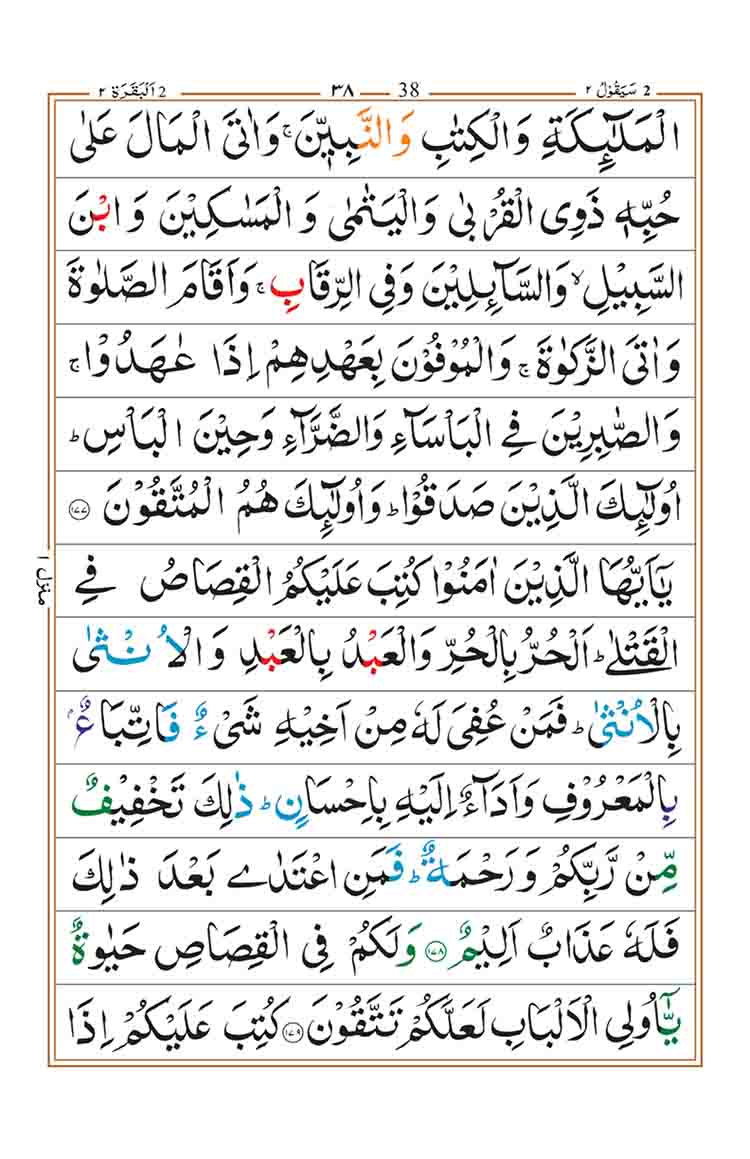 2 سَيَقُوْلُ ٢ 38 ٣٨ 2 اَلْبَقَرَة ٢
الْمَلٰٓئِكَةِ وَالْكِتٰبِ وَالنَّبِيّٖنَ ۚ وَاٰتَى الْمَالَ عَلٰى
حُبِّهٖ ذَوِى الْقُرْبٰى وَالْيَتٰمٰى وَالْمَسٰكِيْنَ وَابْنَ
السَّبِيْلِ ۙ وَالسَّآئِلِيْنَ وَفِى الرِّقَابِ ۚ وَاَقَامَ الصَّلٰوةَ
وَاٰتَى الزَّكٰوةَ ۚ وَالْمُوْفُوْنَ بِعَهْدِهِمْ اِذَا عٰهَدُوْا ۚ
وَالصّٰبِرِيْنَ فِى الْبَاْسَآءِ وَالضَّرَّآءِ وَحِيْنَ الْبَاْسِ ؕ
اُولٰٓئِكَ الَّذِيْنَ صَدَقُوْا ؕ وَاُولٰٓئِكَ هُمُ الْمُتَّقُوْنَ ١٧٧
يٰٓاَيُّهَا الَّذِيْنَ اٰمَنُوْا كُتِبَ عَلَيْكُمُ الْقِصَاصُ فِى
الْقَتْلٰى ؕ اَلْحُرُّ بِالْحُرِّ وَالْعَبْدُ بِالْعَبْدِ وَالْاُنْثٰى
بِالْاُنْثٰى ؕ فَمَنْ عُفِىَ لَهٗ مِنْ اَخِيْهِ شَىْءٌ فَاتِّبَاعٌ ۢ
بِالْمَعْرُوْفِ وَاَدَآءٌ اِلَيْهِ بِاِحْسَانٍ ؕ ذٰلِكَ تَخْفِيْفٌ
مِّنْ رَّبِّكُمْ وَرَحْمَةٌ ؕ فَمَنِ اعْتَدٰى بَعْدَ ذٰلِكَ
فَلَهٗ عَذَابٌ اَلِيْمٌ ١٧٨ وَلَكُمْ فِى الْقِصَاصِ حَيٰوةٌ
يّٰٓاُولِى الْاَلْبَابِ لَعَلَّكُمْ تَتَّقُوْنَ ١٧٩ كُتِبَ عَلَيْكُمْ اِذَا
منزل ١